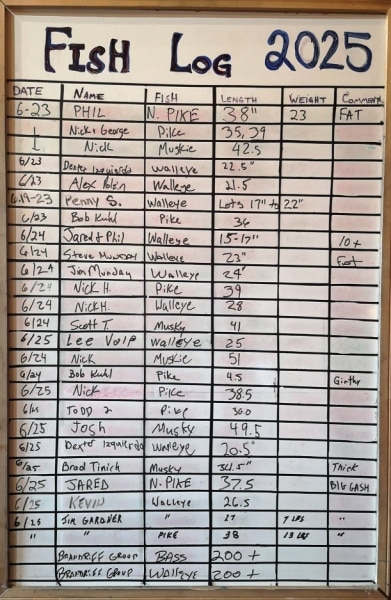 FISH LOG 2025
DATE NAME FISH LENGTH WEIGHT COMMENT
6-23 PHIL N. PIKE 38" 23 FAT
Nick + George Pike 35, 29
Nick Muskie 42.5
6/23 Dexter Izquierdo Walleye 22.5"
6/23 Alex Walleye 21.5
Penny S. Walleye Lots 17" to 22"
6/23 Bob Kuhl Pike 36
6/24 Jared + Phil Walleye 15-17" 10+
6/24 Steve Munday Walleye 23" Fat
6/24 Jim Munday Walleye 24"
6/24 Nick H. Pike 39
6/24 Nick H. Walleye 28
6/24 Scott T. Musky 41
6/25 Lee Volp Walleye 25
6/24 Nick Muskie 51
6/24 Bob Kuhl Pike 4.5 Girthy
6/25 Nick Pike 38.5
6/25 Todd Pike 36.0
6/25 Josh Musky 49.5
6/25 Dexter Izquierdo Walleye 20.5"
6/25 Brad Tinich Musky Thick
6/25 JARED N. PIKE 37.5 BIG GASH
6/25 KEVIN Walleye 26.5
6/25 JIM GARDNER " 27 7 LBS "
" " PIKE 38 13 LBS "
GROUP BASS 200 +
GROUP WALLEYE 200 +